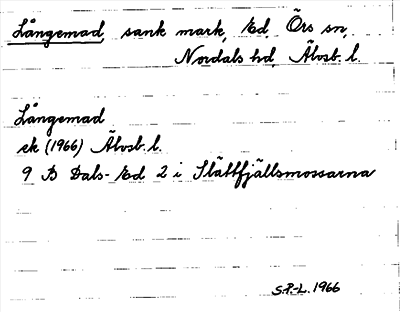 Långemad, sank mark, Ed, Örs sn,
Nordals hd, Älvsb. l.
Långemad
ek (1966) Älvsb. l.
9 B Dals-Ed 2 i Slättfjällsmossarna
S.P.-L. 1966